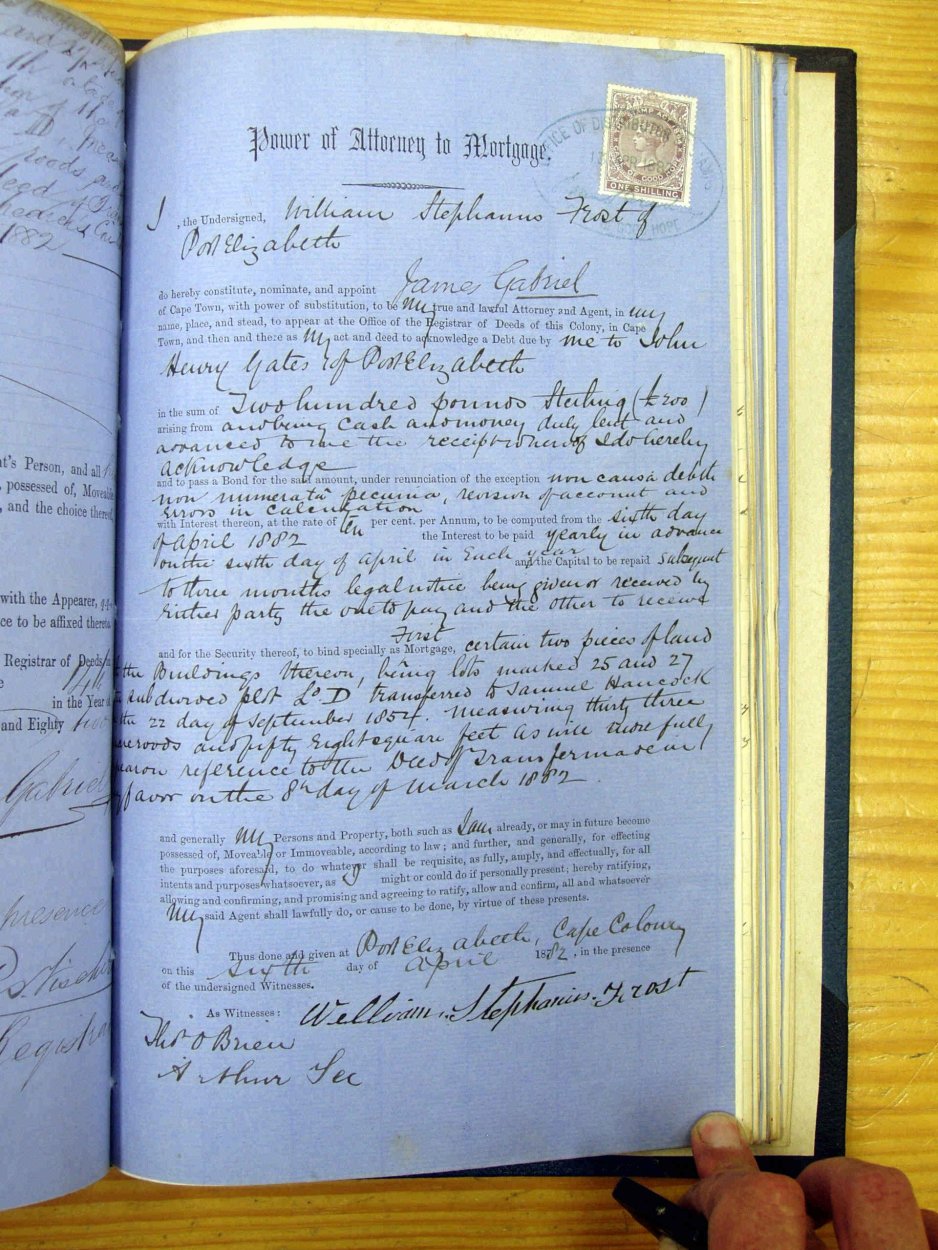 1882
Power of Attorney to Mortgage.
STAMP ACT
OF GOOD HOPE
ONE SHILLING
OFFICE OF DISTRIBUTOR
HOPE
I, the Undersigned, William Stephanus Frost of
Port Elizabeth
do hereby constitute, nominate, and appoint James Gabriel
of Cape Town, with power of substitution, to be My true and lawful Attorney and Agent, in my
name, place, and stead, to appear at the Office of the Registrar of Deeds of this Colony, in Cape
Town, and then and there as My act and deed to acknowledge a Debt due by me to John
Henry Gates of Port Elizabeth
in the sum of Two hundred pounds Sterling (£200)
arising from and being Cash and money duly lent and
advanced to me the receipt whereof I do hereby
acknowledge
and to pass a Bond for the said amount, under renunciation of the exception non causa debiti
non numerata pecunia, revision of account and
Errors in Calculation
with Interest thereon, at the rate of per cent. per Annum, to be computed from the sixth day
of April 1882 the Interest to be paid yearly in advance
on the sixth day of April in Each year and the Capital to be repaid Subsequent
to three months legal notice being given or received by
Either party the one to pay and the other to receive
and for the Security thereof, to bind specially as First Mortgage, certain two pieces of land
the Buildings thereon, being lots marked 25 and 27
subdivided plot La D transferred to Samuel Hancock
the 22 day of September 1854. Measuring thirty three
roods and fifty Eight square feet as will more fully
reference to the Deed of Transfer made in
favor on the 8th day of March 1882.
and generally My Persons and Property, both such as I am already, or may in future become
possessed of, Moveable or Immoveable, according to law; and further, and generally, for effecting
the purposes aforesaid, to do whatever shall be requisite, as fully, amply, and effectually, for all
intents and purposes whatsoever, as I might or could do if personally present; hereby ratifying,
allowing and confirming, and promising and agreeing to ratify, allow and confirm, all and whatsoever
My said Agent shall lawfully do, or cause to be done, by virtue of these presents.
Thus done and given at Port Elizabeth, Cape Colony
on this sixth day of April 1882, in the presence
of the undersigned Witnesses.
As Witnesses: William Stephanus Frost
Thos O'Brien
Arthur Lee
nt's Person, and all
possessed of, Moveable
, and the choice thereof,
with the Appearer, q.q.
ce to be affixed thereto.
Registrar of Deeds
in the Year
and Eighty two
Gabriel
presence